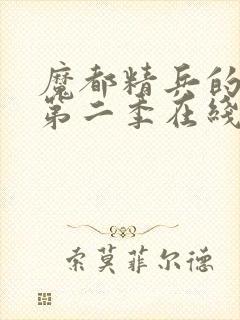 魔都精兵的
第二季在线
索莫菲尔德